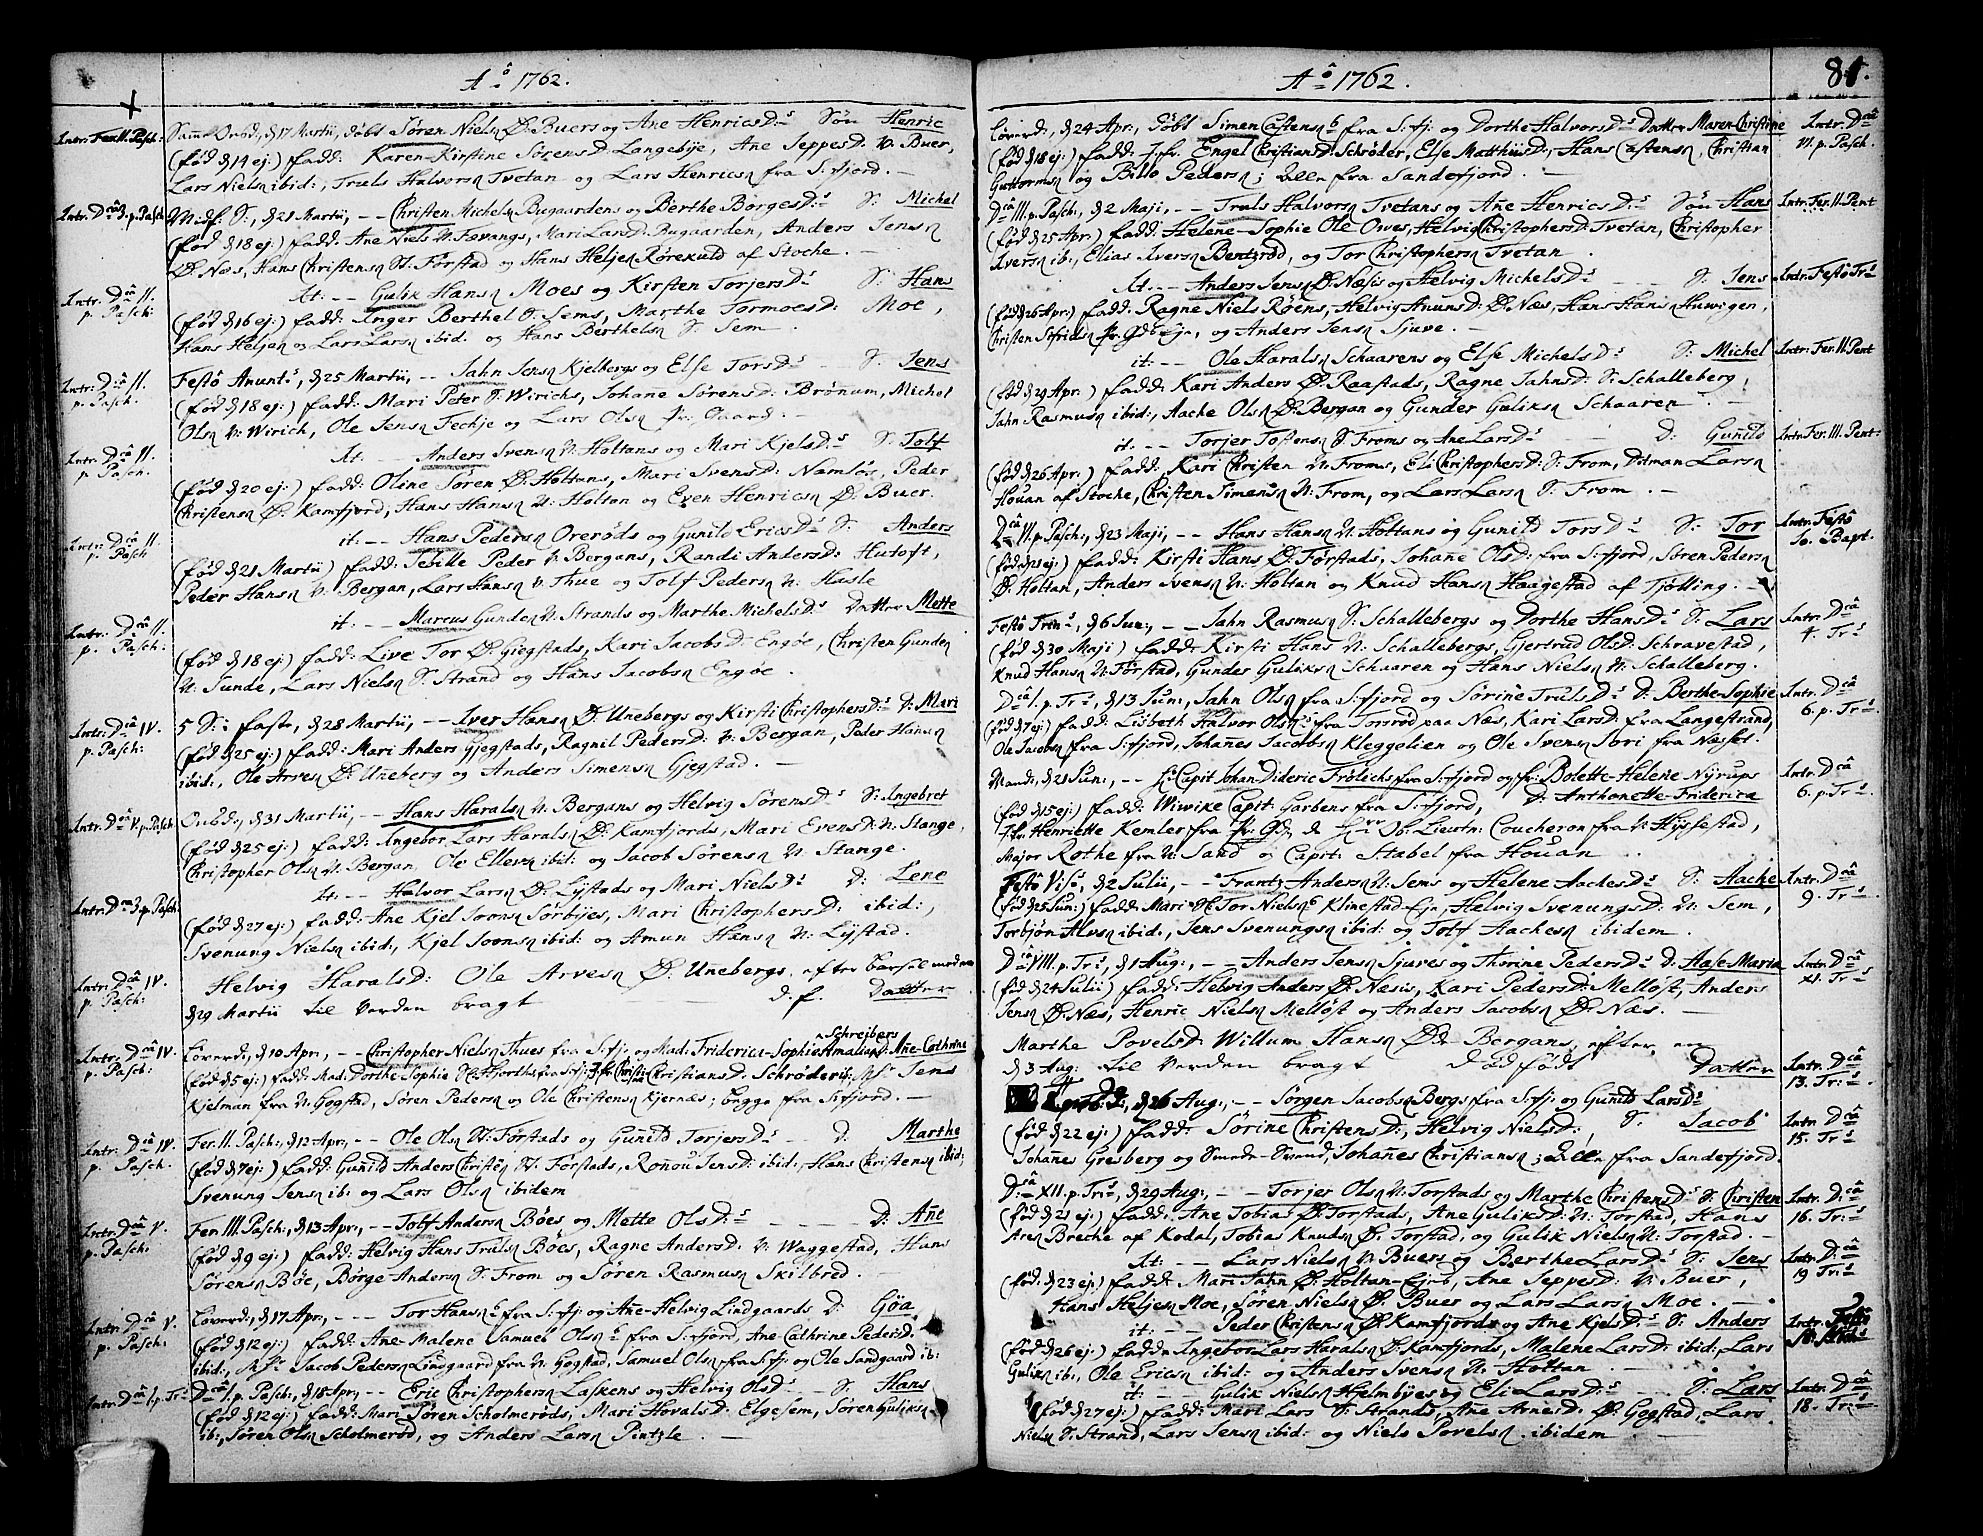 Aô 1762.
Intr. Fer. II. Pasch: Samme Onsd:, d. 17 Martii, døbt Søren Nielsn Ø. Buers og Ane HenricsD:s Søn Henric
(fød d. 14 ej:) fadd: Karen-Kirstine SørensD. Langebye, Ane JeppesD. N. Buer,
Lars Nielsn ibid:, Truels Halvorsn Tvetan og Lars Henricsn fra S:fjord. —
Intr. Dcâ 3. p. Pasch Midf: S:, d. 21 Martii, -- Christen Michelsn Bugaardens og Berthe BorgesD:s S: Michel
(fød d. 18 ej:) fadd: Ane Niels N. Fævangs, Mari LarsD. Bugaarden, Anders Jensn
Ø. Næs, Hans Christensn N. Førstad og Hans Heljesn Rørekuld af Stocke. —
Intr. Dcâ II. p. Pasch: It: -- Gulik Hansn Moes og Kirsten TorjersD:s S: Hans
(fød d. 16 ej:) fadd: Inger Berthel S. Sems, Marthe TormoesD: Moe,
Hans Heljesn og Lars Larsn ibid: og Hans Berthelsn S. Sem.
Intr: Dcâ II. p. Pasch. Festô Anunt:s, d. 25 Martii, -- Jahn Jensn Kjelbergs og Else TorsD:s S: Jens
(fød d. 18 ej:) fadd: Mari Peter N. Wirichs, Johanne SørensD: Brønum, Michel
Olsn N: Wirich, Ole Jensn Fechje og Lars Olsn Pr: Gaard. —
Intr. Dcâ II. p. Pasch. It: -- Anders Svensn N: Holtans og Mari KjelsD:s S: Tolf
(fød d. 20 ej:) fadd: Oline Søren Ø. Holtans, Mari SvensD: Namløs, Peder
Christensn Ø. Kamfjord, Hans Hansn N: Holtan og Even Henricsn Ø. Buer.
Intr: Dcâ II. p. Pasch it: -- Hans Pedersn Orerøds og Gunild EricsD:s S: Anders
(fød d. 21 Martii) fadd: Sebille Peder N. Bergans, Randi AndersD: Hutoft,
Peder Hansn N. Bergan, Lars Hansn N. Thue og Tolf Pedersn N: Hasle
Intr: Dcâ II. p. Pasch: it: -- Marcus Gundersn N. Strands og Marthe MichelsD:s Datter Mette
(fød d. 18 ej:) fadd: Live Tor Ø. Giegstads, Kari JacobsD: Engøe, Christen Gundersn
N: Sunde, Lars Nielsn S. Strand og Hans Jacobsn Engøe.
Intr: Dcâ IV. p. Pasch: 5 S: i faste, d. 28 Martii, -- Iver Hansn Ø. Unnebergs og Kirsti ChristophersD:s D: Mari
(fød d. 25 ej:) fadd: Mari Anders Gjegstads, Ragnil PedersD: N: Bergan, Peder Hansn
ibid:, Ole Arvesn Ø. Unneberg og Anders Simensn Gjegstad. —
Intr: Dcâ V. p. Pasch Onsd:, d. 31 Martii, -- Hans Haralsn N: Bergans og Helvig SørensD:s S: Ingebret
(fød d. 25 ej:) fadd: Ingebor Lars Harals Ø. Kamfjords, Mari EvensD: N: Stange,
Christopher Olsn N: Bergan, Ole Ellevsn ibid: og Jacob Sørensn N: Stange.
Intr: Dca 3. p. Pasch: It: -- Halvor Larsn Ø. Lystads og Mari NielsD:s D: Lene
(fød d. 27 ej:) fadd: Ane Kjel Joens Sørbyes, Mari ChristophersD: ibid:,
Svenung Nielsn ibid:, Kjel Joensn ibid: og Amun Hansn N: Lystad.
Intr: Dcâ IV. p. Pasch: Helvig HaralsD: Ole Arvesn Ø. Unnebergs, efter barsel med en
d. 29 Martii til Verden bragt d. f. Datter
Intr: Dcâ IV. p. Pasch: Løverd:, d. 10 Apr:, -- Christopher Nielsn Thues fra S:fj: og Mad: Friderica-Sophie Amalia Schreibers D: Ane-Cathrine
(fød d. 5 ej:) fadd: Mad: Dorthe Sophie Hjorths fra S:fj: Jfr. Christiane ChristiansD: Schrøder ib: Mr Jens
Kjelman fra N: Gogstad, Søren Pedersn og Ole Christensn Kjernæs; begge fra S:fjord. —
Intr: Dcâ IV. p. Pasch. Fer. II. Pasch:, d. 12 Apr:, -- Ole Olsn N. Førstads og Gunnild TorjersD:s D: Marthe
(fød d. 7 ej:) fadd: Gunild Anders Christensn N. Førstads, Ronnou JensD: ibid:, Hans Christensn ibid:,
Svenung Jensn ib: og Lars Olsn ibidem
Intr: Dcâ V. p. Pasch: Fer. III. Pasch:, d. 13 Apr:, -- Tolf Andersn Bøes og Mette OlsD:s D: Ane
(fød d. 9 ej:) fadd: Helvig Hans Truls Bøes, Ragne AndersD: N: Waggestad, Hans
Sørensn Bøe, Børge Andersn S. From og Søren Rasmusn Skilbred. —
Intr: Dcâ V. p. Pasch: Løverd:, d. 17 Apr:, --- Tor Hansns fra S:fj: og Ane-Helvig Lindgaards D: Gøa
(fød d. 12 ej:) fadd: Ane-Malene Samuel Olsns fra S:fjord, Ane Cathrine PedersD.
ibid:, Mr Jacob Pedersn Lindgaard fra N: Gogstad, Samuel Olsn fra S:fj: og Ole Sandgaard ib:
Intr: Dcâ 1. p. Tr:s Dcâ 1. p. Pasch:, d. 18 Apr:, -- Eric Christophersn Laskens og Helvig OlsD:s S: Hans
(fød d. 12 ej:) fadd: Mari Søren Scholmerøds, Mari HoralsD: Elgesem, Søren Guliksn
ib:, Søren Olsn Scholmerød, og Anders Larsn Pintzle. —
Aô 1762. 81.
Løverd:, d. 24 Apr:, døbt Simen Castensns fra S:fj: og Dorthe HalvorsD:s Datter Maren-Christine Intr: Dcâ VI. p. Pasch.
(fød d. 18 ej:) fadd: Jfr: Engel ChristiansD: Schrøder, Else MatthiisD:, Hans Castensn, Christian
Guttormsn og Bille Pedersn; alle fra Sandefjord.
Dcâ III. p. Pasch:, d. 2 Maji, -- Truls Halvorsn Tvetans og Ane HenricsD:s Søn Hans Intr: Fer. II. Pent
(fød d. 25 Apr:) fadd: Helene-Sophie Ole Oves, Helvig ChristophersD: Tvetan, Christopher
Iversn ib:, Elias Iversn Bentzrød, og Tor Christophersn Tvetan.
It: -- Anders Jensn Ø. Næss og Helvig MichelsD:s S: Jens Intr: Festô Tr:s
(fød d. 26 Apr:) fadd: Ragne Niels Røens, Helvig AnunsD: Ø. Næs, Hans Hansn Huwigen,
Christen Sefridsn Pr: Gds Eje, og Anders Jensn Sjuve. —
it: -- Ole Haralsn Schaarens og Else MichelsD:s S: Michel Intr: Fer. II. Pent
(fød d. 29 Apr:) fadd: Kari Anders Ø. Raastads, Ragne JahnsD: S: Schalleberg,
Jahn Rasmusn ibid:, Aache Olsn Ø. Bergan og Gunder Guliksn Schaaren
it: -- Torjer Tostensn S. Froms og Ane LarsD:s D: Gunild Intr: Fer. III. Pent:
(fød d. 26 Apr:) fadd: Kari Christen N. Froms, Eli ChristophersD: S. From, Ditman Larsn
Houan af Stocke, Christen Simensn N: From, og Lars Larsn S. From. —
Dcâ VI. p. Pasch:, d. 23 Maji, -- Hans Hansn N. Holtans og Gunild TorsD:s S: Tor Intr: Festô Jo. Bapt.
(fød ej:) fadd: Kirsti Hans Ø. Førstads, Johane OlsD: fra S:fjord, Søren Pedersn
Ø. Holtan, Anders Svensn N: Holtan og Knud Hansn Haagestad af Tjølling. —
Festô Trin:s, d. 6 Jun:, -- Jahn Rasmusn S. Schallebergs og Dorthe HansD:s S: Lars Intr: Dcâ 4. Tr:s
(fød d. 30 Maji) fadd: Kirsti Hans N: Schallebergs, Gjertrud OlsD: Schravestad,
Knud Hansn N: Førstad, Gunder Guliksn Schaaren og Hans Nielsn N: Schalleberg.
Dcâ 1. p. Tr:s, d. 13 Jun:, Jahn Olsn fra S:fjord og Sørine TrulsD:s D: Berthe-Sophie Intr: Dcâ 6. p. Tr:s
(fød d. 7 ej:) fadd: Lisbeth Halvor Olsns fra Torsrød paa Næs, Kari LarsD: fra Langestrand,
Ole Jacobsn fra S:fjord, Johannes Jacobsn Kleggolien og Ole Svensn Søri fra Næsset.
Mand:, d. 21 Jun:, -- Hr Capit Johan Dideric Frølichs fra S:fjord og fr: Bolette-Helene Nyrups Intr: Dcâ 6. p. Tr:s
(fød d. 15 ej:) fadd: Wiwike Capit: Garbens fra S:fjord, D: Anthonette-Friderica
Jfr: Henriette Kemler fra Pr: G., Hrr Ob: Lieutn: Coucheron fra N: Hyssestad,
Major Rothe fra N: Sand og Capit: Stabel fra Houan.
Festô Vis:s, d. 2 Julii, -- Frantz Andersn N: Sems og Helene AachesD:s S: Aache Intr: Dcâ 9. Tr:s
(fød d. 25 Jun:) fadd: Mari Tor Nielsns Klinestad-Eje, Helvig SvenungsD: N: Sem,
Torbjøn Alvsn ibid:, Jens Svenungsn ibid: og Tolf Aachesn ibidem.
Dcâ VIII. p. Tr:s, d. 1 Aug:, -- Anders Jensn Sjuves og Thorine PedersD:s D: Hase-Maria Intr: Dcâ XI. Tr:s
(fød d. 24 Julii) fadd: Helvig Anders Ø. Næsis, Kari PedersD: Melløst, Anders
Jensn Ø. Næs, Henric Nielsn Melløst og Anders Jacobsn Ø. Næs. —
Marthe PovelsD: Willum Hansn Ø. Bergans, efter en
d. 3 Aug: til Verden bragt dødfødt Datter Intr: Dcâ 13. Tr:s
d. 26 Aug:, -- Jørgen Jacobsn Bergs fra S:fj: og Gunild LarsD:s
(fød d. 22 ej:) fadd: Sørine ChristensD:, Helvig NielsD:, S. Jacob Intr: Dcâ 15. Tr:s
Johannes Gresberg og Smede-Svend, Johannes Christiansn; alle fra Sandefjord.
D:câ XII. p. Tr:s, d. 29 Aug:, -- Torjer Olsn N: Torstads og Marthe ChristensD:s S: Christen Intr: D:câ 16. Tr:s
(fød d. 21 ej:) fadd: Ane Tobias Ø. Torstads, Ane GulikD: N: Torstad, Hans
Aresn Breche af Kodal, Tobias Knudsn Ø. Torstad, og Gulik Nielsn N: Torstad. —
It: -- Lars Nielsn N: Buers og Berthe LarsD:s S: Jens Intr: D:câ 19 Tr:s
(fød: d. 23 ej:) fadd: Mari Jahn Ø. Holtan-Ejes, Ane JeppesD: N: Buer,
Hans Heljesn Moe, Søren Nielsn Ø. Buer og Lars Larsn Moe. —
it: -- Peder Christensn Ø. Kamfjords og Ane KjelsD:s S: Anders Intr:
(fød d. 26 ej:) fadd: Ingebor Lars Harals Ø. Kamfjords, Malene LarsD: ibid:, Lars
Guliksn ib:, Ole Ericsn ibid: og Anders Svensn N: Holtan.
it: -- Gulik Nielsn Hjelmbyes og Eli LarsD:s S: Lars Intr: Dcâ 18. Tr:s
(fød d. 27 ej:) fadd: Mari Lars S: Strands, Ane ArnesD: Ø. Gogstad, Lars
Nielsn S. Strand, Lars Jensn ibid: og Niels Povelsn ibidem —